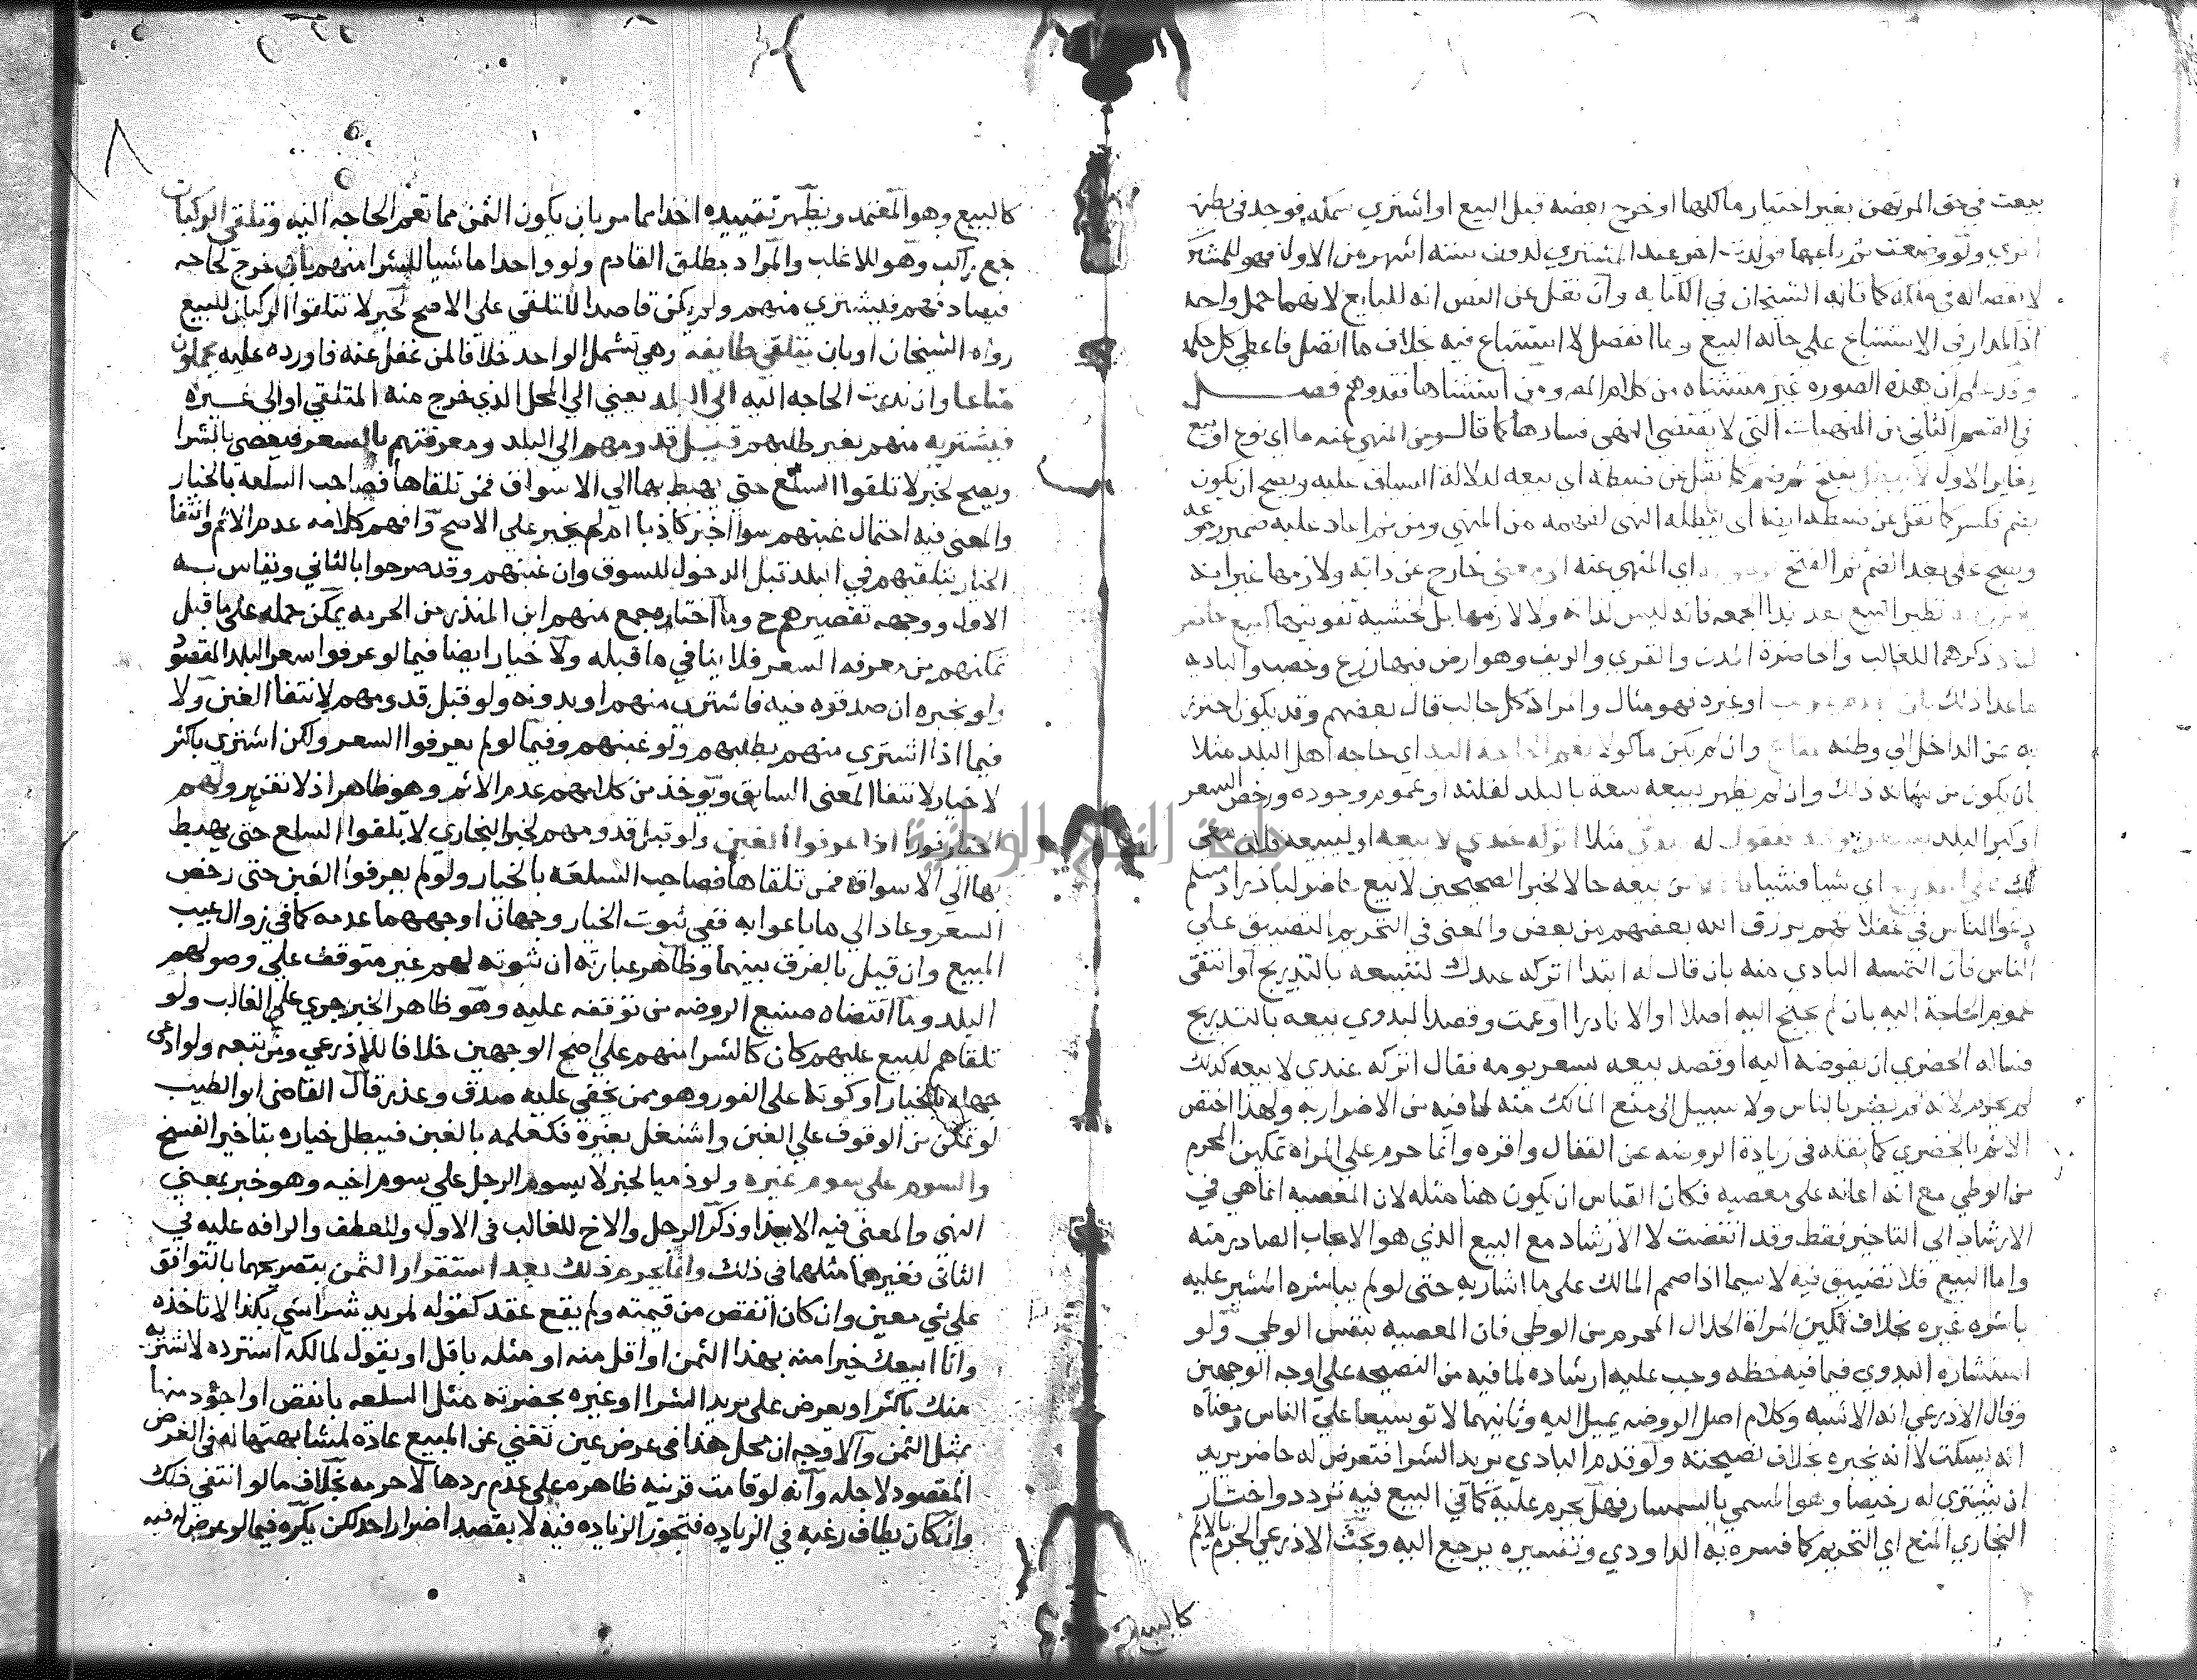 بيعت في حق المرتهن بغير اختيار مالكها او خرج بعضه قبل البيع او اشتري سمكه فوجد في بطنها
اخري ولو وضعت ثم باعها فولدت اخر عند المشتري لدون ستة اشهر من الاول فهو للمشتري
لانفصاله في ملكه كما قاله الشيخان في الكتابه وان نقل عن النص انه للبايع لانهما حمل واحد
اذ المدار في الاستتباع علي حاله البيع وما انفصل لا استتباع فيه بخلاف ما اتصل فاعطي كل حكمه
ان هذه الصوره غير مستثناه من كلام المص ومن استثناها فقد وهم فصل
في القسم الثاني من المنهيات التي لا يقتضي النهي فسادها كما قال ومن المنهي عنه ما اي نوع او بيع
يغاير الاول لا يبطل بفتح ثم ضم كما نقل عن ضبطه اي بيعه لدلالة السياق عليه ويصح ان يكون
بضم فكسر كما نقل عن ضبطه ايضا اي يبطله النهي لفهمه من المنهي ومن ثم اعاد عليه ضمير رجوعه
ويصح علي بعد الضم ثم الفتح اي المنهي عنه لمعني خارج عن ذاته ولازمها غير انه
نظير البيع بعد ندا الجمعه فانه ليس لذاته ولا لازمها بل لخشية تفويتها كبيع حاضر
لباد ذكرهما للغالب والحاضرة المدن والقري والريف وهو ارض فيها زرع وخصب والباديه
ما عدا ذلك بان او غيره فهو مثال والمراد كل جالب قال بعضهم وقد يكون احترز
به عن الداخل الي وطنه وان لم يكن ماكولا تعم الحاجة اليه اي حاجه اهل البلد مثلا
بان يكون من شانه ذلك وان لم يظهر ببيعه سعة بالبلد لقلته او عموم وجوده ورخص السعر
او كبر البلد فيقول له مثلا اتركه عندي لابيعه او ليبيعه فلان معي
لك علي التدريج اي شيا فشيا من بيعه حالا لخبر الصحيحين لا يبيع حاضر لباد زاد مسلم
دعوا الناس في غفلاتهم يرزق الله بعضهم من بعض والمعني في التحريم التضييق علي
الناس فان التمسه البادي منه بان قال له ابتدا اتركه عندك لتبيعه بالتدريج او انتفي
عموم الحاجة اليه بان لم يحتج اليه اصلا او الا نادرا او عمت وقصد البدوي بيعه بالتدريج
فساله الحضري ان يفوضه اليه او قصد بيعه بسعر يومه فقال اتركه عندي لابيعه كذلك
لم يحرم لانه لم يضر بالناس ولا سبيل الي منع المالك منه لما فيه من الاضرار به ولهذا اختص
الاثم بالحضري كما نقله في زيادة الروضه عن القفال واقره وانما حرم علي المراه تمكين المحرم
من الوطي مع انه اعانه علي معصيه فكان القياس ان يكون هنا مثله لان المعصيه انما هي في
الارشاد الي التاخير فقط وقد انقضت لا الارشاد مع البيع الذي هو الايجاب الصادر منه
واما البيع فلا تضييق فيه لا سيما اذا صمم المالك علي ما اشار به حتي لو لم يباشره المشير عليه
باشره غيره بخلاف تمكين المراة الحلال المحرم من الوطي فان المعصيه بنفس الوطي ولو
استشاره البدوي فيما فيه حظه وجب عليه ارشاده لما فيه من النصيحه علي اوجه الوجهين
وقال الاذرعي انه الاشبه وكلام اصل الروضه يميل اليه وثانيهما لا توسيعا علي الناس ومعناه
انه يسكت لا انه يخبره بخلاف نصيحته ولو قدم البادي يريد الشرا فتعرض له حاضر يريد
ان يشتري له رخيصا وهو المسمي بالسمسار فهل يحرم عليه كما في البيع فيه تردد واختار
البخاري المنع اي التحريم كما فسره به الداودي وتفسيره يرجع اليه وبحث الاذرعي الجزم بالاثم
كالبيع
٨
كالبيع وهو المعتمد ويظهر تقييده اخذا مما مر بان يكون الثمن مما تعم الحاجه اليه وتلقي الركبان
جمع راكب وهو للاغلب والمراد مطلق القادم ولو واحدا ماشيا للشرا منهم بان خرج لحاجه
فصادفهم فيشتري منهم ولو لم يكن قاصدا للتلقي علي الاصح لخبر لا تتلقوا الركبان للبيع
رواه الشيخان او بان يتلقي طايفه وهي تشمل الواحد خلافا لمن غفل عنه فاورده عليه يحملون
متاعا وان ندرت الحاجه اليه الي البلد يعني الي المحل الذي خرج منه المتلقي او الي غيره
فيشتريه منهم بغير طلبهم قبل قدومهم الي البلد ومعرفتهم بالسعر فيعصي بالشرا
ويصح لخبر لا تلقوا السلع حتي يهبط بها الي الاسواق فمن تلقاها فصاحب السلعه بالخيار
والمعني فيه احتمال غبنهم سوا اخبر كاذبا ام لم يخبر علي الاصح وافهم كلامه عدم الاثم وانتفا
الخيار بتلقيهم في البلد قبل الدخول للسوق وان غبنهم وقد صرحوا بالثاني وتقاس به
الاول ووجهه تقصيرهم ح وما اختاره جمع منهم ابن المنذر من الحرمه يمكن حمله علي ما قبل
تمكنهم من معرفه السعر فلا ينافي ما قبله ولا خيار ايضا فيما لو عرفوا سعر البلد المقصود
ولو بخبره ان صدقوه فيه فاشتري منهم او بدونه ولو قبل قدومهم لانتفا الغبن ولا
فيما اذا اشتري منهم بطلبهم ولو غبنهم وفيما لو لم يعرفوا السعر ولكن اشتري باكثر
لا خيار لانتفا المعني السابق ويوخذ من كلامهم عدم الاثم وهو ظاهر اذ لا تغرير ولهم
الخيار فورا اذا عرفوا الغبن ولو قبل قدومهم لخبر البخاري لا تلقوا السلع حتي يهبط
بها الي الاسواق فمن تلقاها فصاحب السلعه بالخيار ولو لم يعرفوا الغبن حتي رخص
السعر وعاد الي ما باعوا به ففي ثبوت الخيار وجهان اوجههما عدمه كما في زوال عيب
المبيع وان قيل بالفرق بينهما وظاهر عبارته ان ثبوته لهم غير متوقف علي وصولهم
البلد وما اقتضاه صنيع الروضه من توقفه عليه وهو ظاهر الخبر جري علي الغالب ولو
تلقاهم للبيع عليهم كان كالشرا منهم علي اصح الوجهين خلافا للاذرعي ومن تبعه ولو ادعي
جهله بالخيار او كونه علي الفور وهو ممن يخفي عليه صدق وعذر قال القاضي ابو الطيب
لو تمكن من الوقوف علي الغبن واشتغل بغيره فكعلمه بالغبن فيبطل خياره بتاخير الفسخ
والسوم علي سوم غيره ولو ذميا لخبر لا يسوم الرجل علي سوم اخيه وهو خبر بمعني
النهي والمعني فيه الايذا وذكر الرجل والاخ للغالب في الاول وللعطف والرافه عليه في
الثاني فغيرهما مثلهما في ذلك وانما يحرم ذلك بعد استقرار الثمن بتصريحهما بالتوافق
علي شي معين وان كان انقص من قيمته ولم يقع عقد كقوله لمريد شرا شي بكذا لا تاخذه
وانا ابيعك خيرا منه بهذا الثمن او اقل منه او مثله باقل او يقول لمالكه استرده لاشتريه
منك باكثر او يعرض علي مريد الشرا او غيره بحضرته مثل السلعه بانقص او اجود منها
بمثل الثمن والاوجه ان محل هذا في عرض عين تغني عن المبيع عادة لمشابهتها له في الغرض
المقصود لاجله وانه لو قامت قرينه ظاهره علي عدم ردها لا حرمه بخلاف ما لو انتفي ذلك
وان كان يطاف رغبه في الزياده فتجوز الزياده فيه لا بقصد اضرار احد لكن يكره فيما لو عرض له فيه